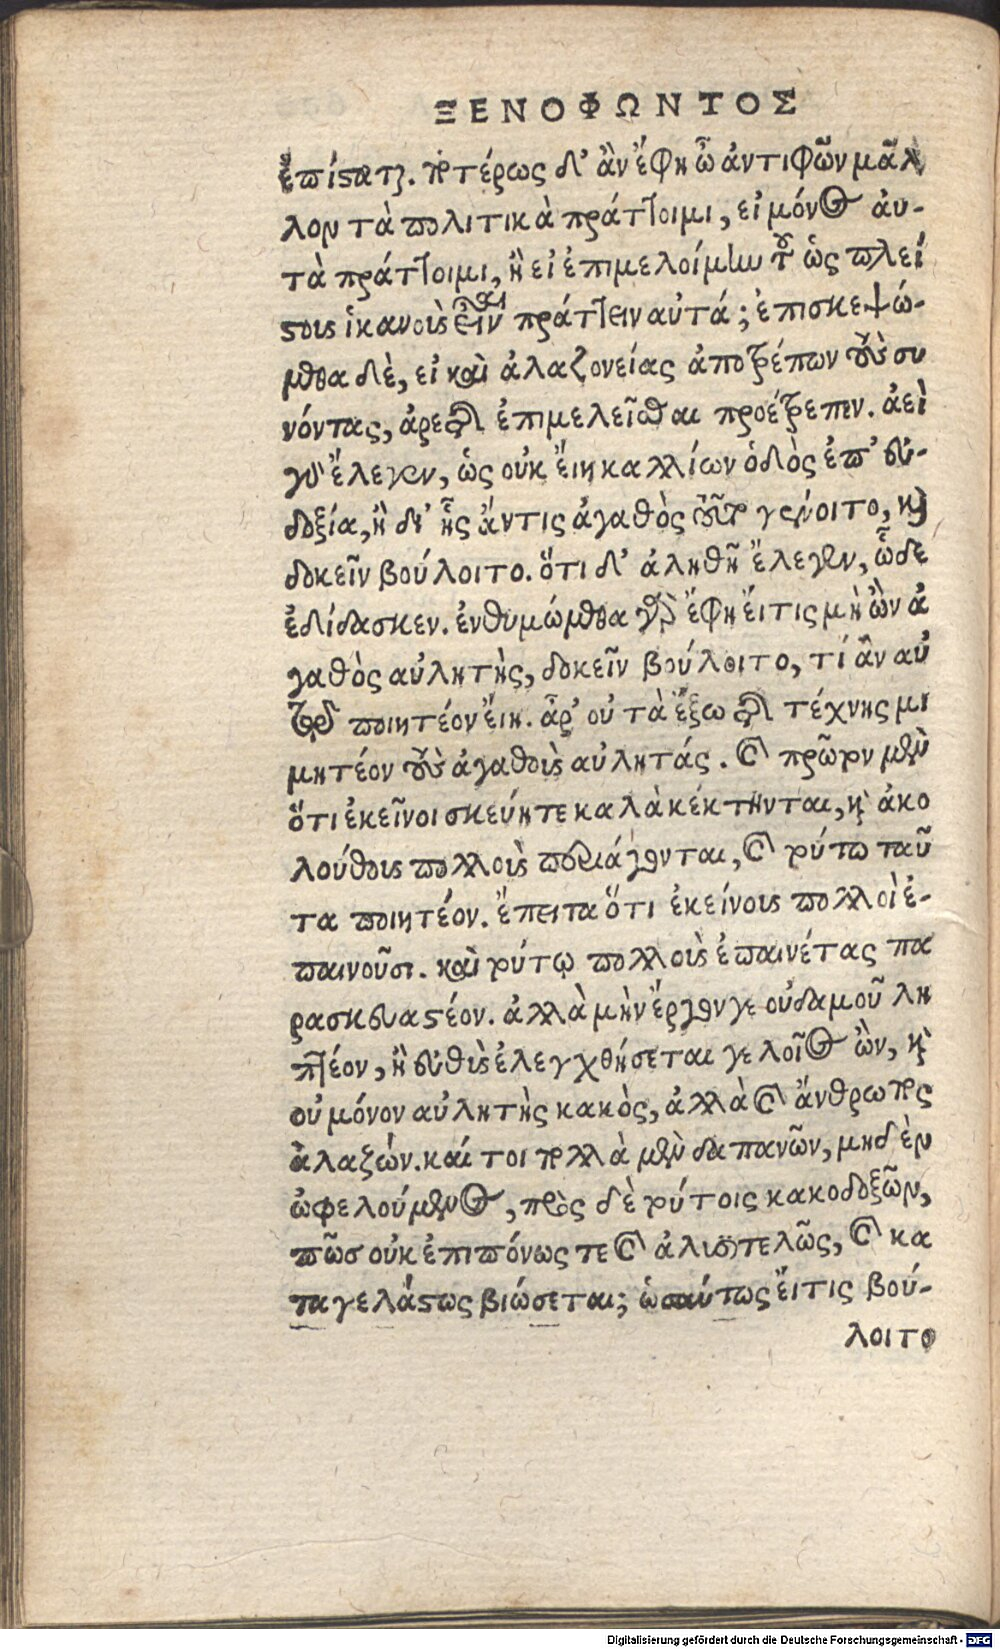 ΞΕΝΟΦΩΝΤΟΣ
ἐπίσαται. ποτέρως δ' ἂν ἔφη ὦ ἀντιφῶν μᾶλ
λον τὰ πολιτικὰ πράττοιμι, εἰ μόνος αὐ-
τὰ πράττοιμι, ἢ εἰ ἐπιμελοίμην τοῦ ὡς πλεί
στους ἱκανοὺς εἶναι πράττειν αὐτά; ἐπισκεψώ-
μεθα δὲ, εἰ καὶ ἀλαζονείας ἀποτρέπων τοὺς συ
νόντας, ἀρετῆς ἐπιμελεῖσθαι προέτρεπεν. ἀεὶ
γὰρ ἔλεγεν, ὡς οὐκ ἔιη καλλίων ὁδὸς ἐπ' εὐ-
δοξία, ἢ δι' ἧς ἄντις ἀγαθὸς τοῦτο γένοιτο, καὶ
δοκεῖν βούλοιτο. ὅτι δ' ἀληθῆ ἔλεγεν, ὧδε
ἐδίδασκεν. ἐνθυμώμεθα γὰρ ἔφη ἔιτις μὴ ὢν ἀ
γαθὸς αὐλητὴς, δοκεῖν βούλοιτο, τί ἂν αὐ
τῷ ποιητέον ἔιη. ἆρ' οὐ τὰ ἔξω τῆς τέχνης μι
μητέον τοὺς ἀγαθοὺς αὐλητάς. καὶ πρῶτον μὲν
ὅτι ἐκεῖνοι σκεύητε καλὰ κέκτηνται, καὶ ἀκο
λούθους πολλοὺς περιάγονται, καὶ τούτω ταῦ
τα ποιητέον. ἔπειτα ὅτι ἐκείνους πολλοὶ ἐ-
παινοῦσι. καὶ τούτῳ πολλοὺς ἐπαινέτας πα
ρασκευαστέον. ἀλλὰ μὴν ἔργον γε οὐδαμοῦ λη
πτέον, ἢ εὐθὺς ἐλεγχθήσεται γελοῖος ὢν, καὶ
οὐ μόνον αὐλητὴς κακὸς, ἀλλὰ καὶ ἄνθρωπος
ἀλαζών. καί τοι πολλὰ μὲν δαπανῶν, μηδὲν
ὠφελούμενος, πρὸς δὲ τούτοις κακοδοξῶν,
πῶσ οὐκ ἐπιπόνως τε καὶ ἀλυσιτελῶς, καὶ κα
ταγελάστως βιώσεται; ὡσαύτως ἔιτις βού-
λοιτο
Digitalisierung gefördert durch die Deutsche Forschungsgemeinschaft - DFG